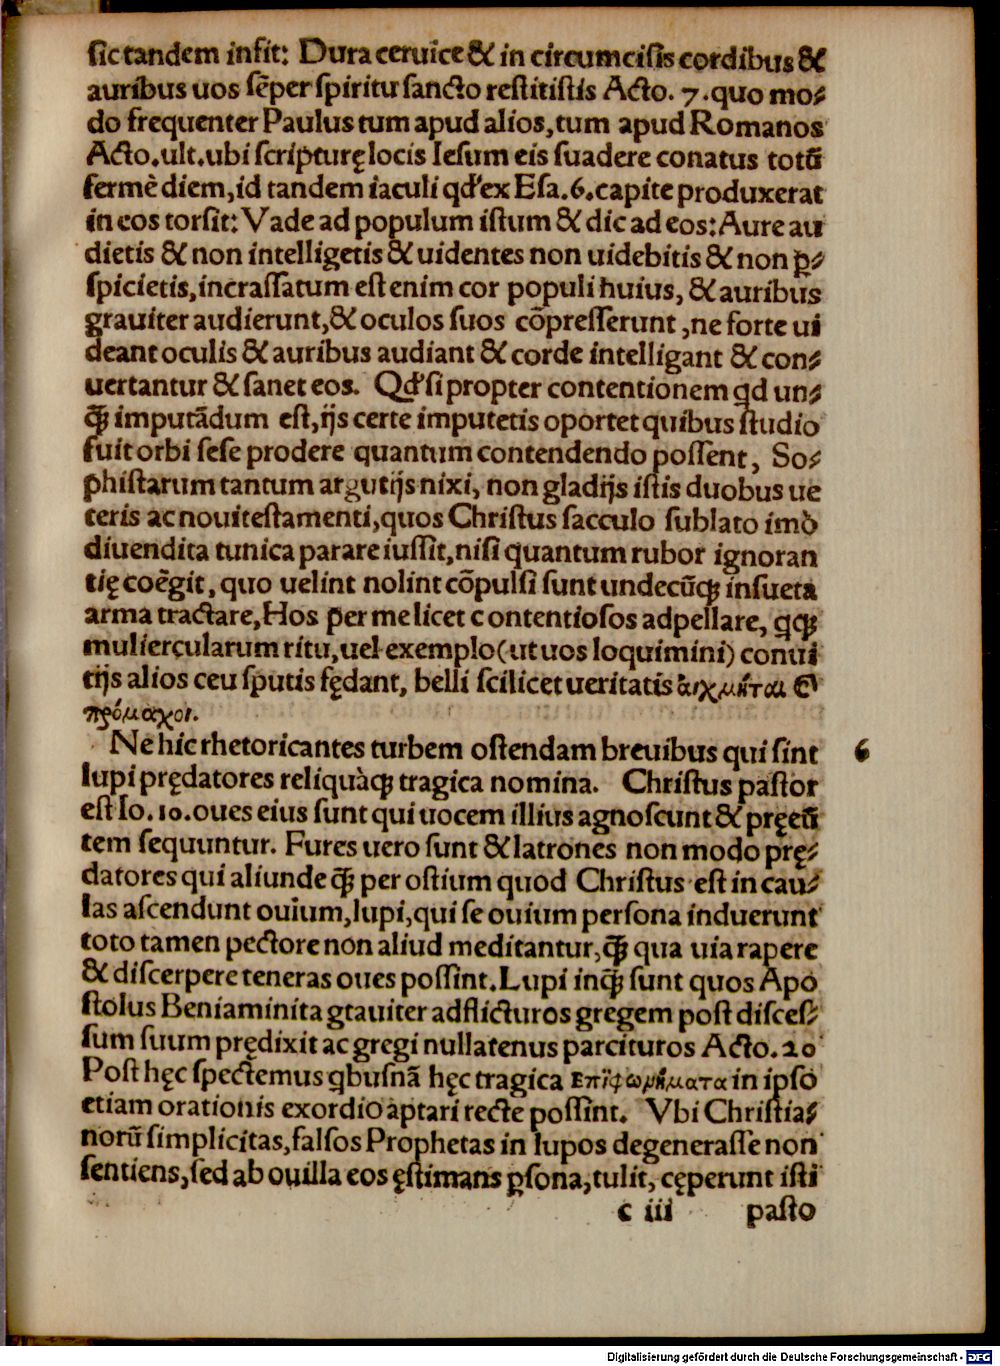 sic tandem insit: Dura ceruice & in circumcisis cordibus &
auribus uos sēper spiritu sancto restitistis Acto. 7. quo mo⸗
do frequenter Paulus tum apud alios, tum apud Romanos
Acto. ult. ubi scripturę locis Iesum eis suadere conatus totū
fermè diem, id tandem iaculi qd' ex Esa. 6. capite produxerat
in eos torsit: Vade ad populum istum & dic ad eos: Aure au
dietis & non intelligetis & uidentes non uidebitis & non ꝑ⸗
spicietis, incrassatum est enim cor populi huius, & auribus
grauiter audierunt, & oculos suos cōpresserunt, ne forte ui
deant oculis & auribus audiant & corde intelligant & con⸗
uertantur & sanet eos. Qd' si propter contentionem qd un⸗
ꝗ̃ imputādum est, ijs certe imputetis oportet quibus studio
fuit orbi sese prodere quantum contendendo possent, So⸗
phistarum tantum argutijs nixi, non gladijs istis duobus ue
teris ac noui testamenti, quos Christus sacculo sublato imò
diuendita tunica parare iussit, nisi quantum rubor ignoran
tię coēgit, quo uelint nolint cōpulsi sunt undecūqꝫ insueta
arma tractare, Hos per me licet c ontentiosos adpellare, qqꝫ
muliercularum ritu, uel exemplo (ut uos loquimini) conui
tijs alios ceu sputis fędant, belli scilicet ueritatis αἰχμῆται &
πρόμαχοι.
Ne hic rhetoricantes turbem ostendam breuibus qui sint 6
lupi prędatores reliquàqꝫ tragica nomina. Christus pastor
est Io. 10. oues eius sunt qui uocem illius agnoscunt & pręeū
tem sequuntur. Fures uero sunt & latrones non modo prę⸗
datores qui aliunde ꝗ̃ per ostium quod Christus est in cau⸗
las ascendunt ouium, lupi, qui se ouium persona induerunt
toto tamen pectore non aliud meditantur, ꝗ̃ qua uia rapere
& discerpere teneras oues possint. Lupi inꝗ̃ sunt quos Apo
stolus Beniaminita gtauiter adflicturos gregem post disces⸗
sum suum prędixit ac gregi nullatenus parcituros Acto. 20
Post hęc spectemus qbusnā hęc tragica ἐπιφωνήματα in ipso
etiam orationis exordio aptari recte possint. Vbi Christia⸗
norū simplicitas, falsos Prophetas in lupos degenerasse non
sentiens, sed ab ouilla eos ęstimans ꝑsona, tulit, cęperunt isti
c iii pasto
Digitalisierung gefördert durch die Deutsche Forschungsgemeinschaft - DFG